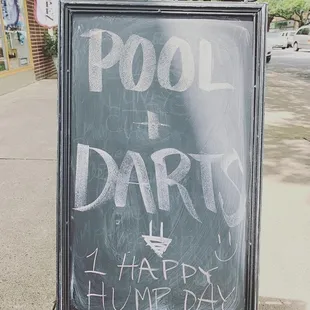 POOL
+
DARTS
1 HAPPY
HUMP DAY